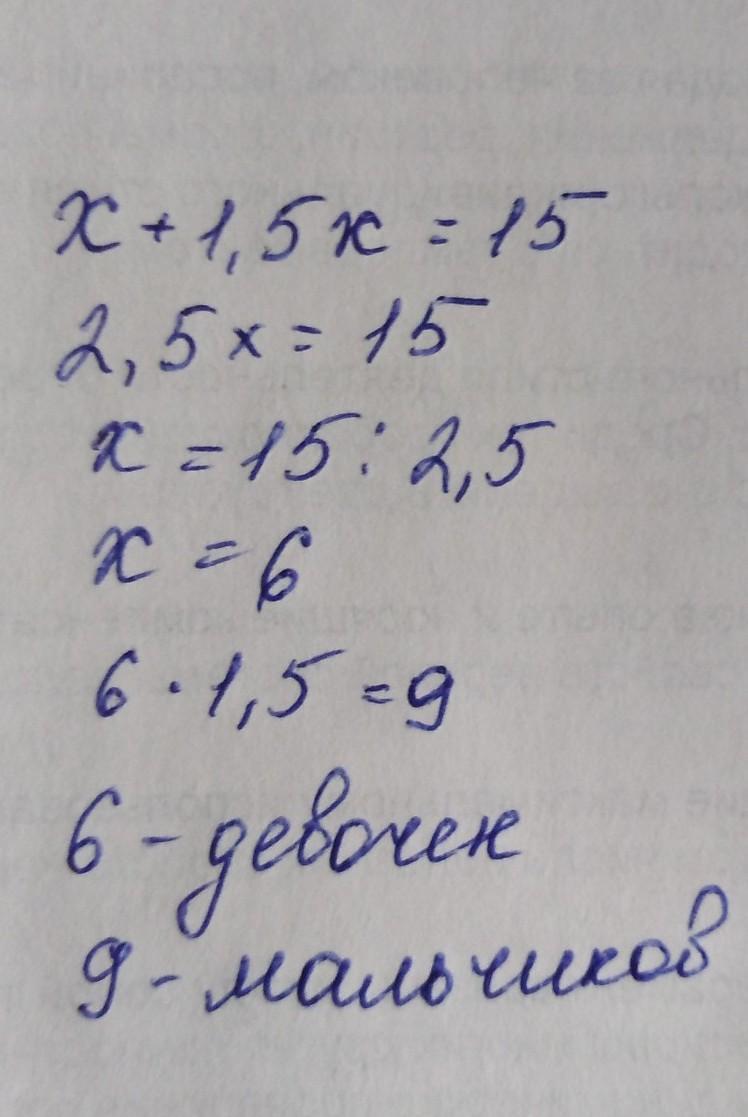 x + 1,5x = 15
2,5x = 15
x = 15 : 2,5
x = 6
6 · 1,5 = 9
6 - девочек
9 - мальчиков